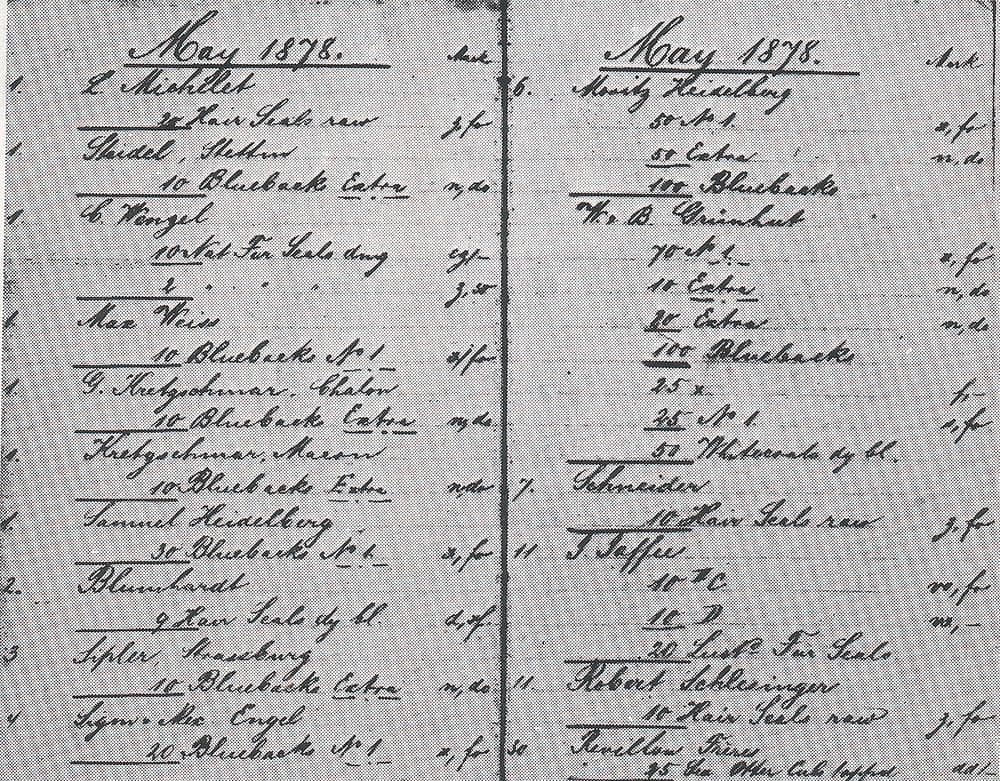 May 1878.
Mark
1. L. Michelet
20 Hair Seals raw z,fo
1. Steidel, Stettin
10 Bluebacks Extra n,do
1. C. Wengel
10 Nat Fur Seals
2 " " "
1. Max Weiss
10 Bluebacks No 1 x,fo
1. G. Kretzschmar, Chalon
10 Bluebacks Extra n,do
1. Kretzschmar, Macon
10 Bluebacks Extra n,do
1. Samuel Heidelberg
30 Bluebacks No 1. x,fo
2. Blumhardt
9 Hair Seals dy bl.
3 Sipler, Strassburg
10 Bluebacks Extra n,do
4 Engel
20 Bluebacks No 1. x,fo
May 1878.
Mark
6. Moritz Heidelberg
50 No 1. x,fo
50 Extra n,do
100 Bluebacks
W. & B. Grünhut
70 No 1. x,fo
10 Extra n,do
20 Extra n,do
100 Bluebacks
25 x
25 No 1.
50 Whitecoats dy bl.
7. Schneider
10 Hair Seals raw z,fo
11 J. Jaffée
10 C
10 D
20 Fur Seals
11. Robert Schlesinger
10 Hair Seals raw z,fo
30 Revillon Frères
25 Sea Otter Cub topped